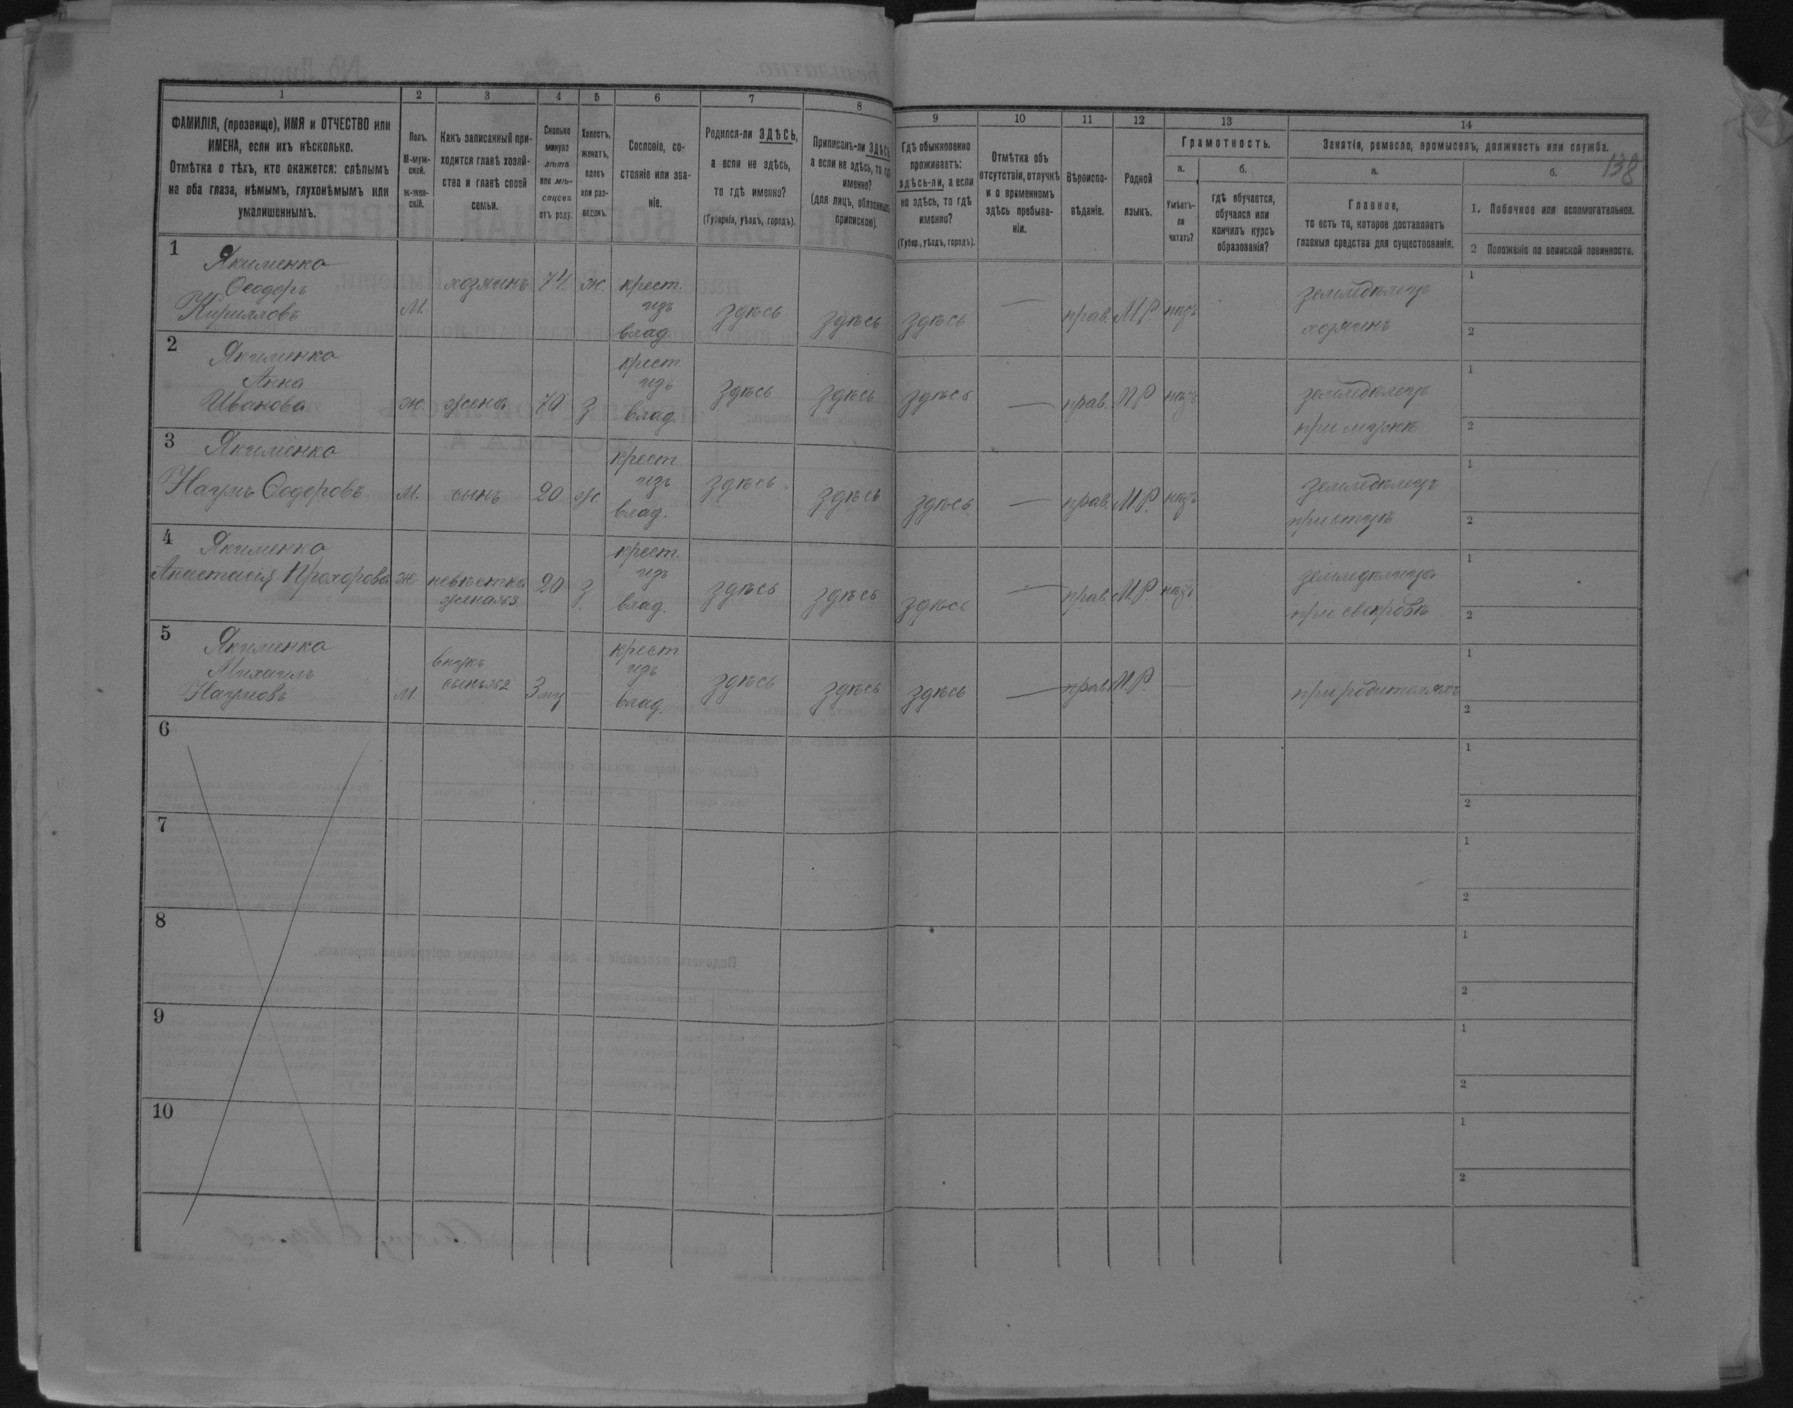 138
1
2
3
4
5
6
7
8
9
10
11
12
13
14
ФАМИЛІЯ, (прозвище), ИМЯ и ОТЧЕСТВО или
ИМЕНА, если ихъ нѣсколько.
Отмѣтка о тѣхъ, кто окажется: слѣпымъ
на оба глаза, нѣмымъ, глухонѣмымъ или
умалишеннымъ.
Полъ.
М-муж-
ской.
Ж-жен-
скій.
Какъ записанный при-
ходится главѣ хозяй-
ства и главѣ своей
семьи.
Сколько
минуло
лѣтъ
или мѣ-
сяцевъ
отъ роду.
Холостъ,
женатъ,
вдовъ
или раз-
веденъ.
Сословіе, со-
стояніе или зва-
ніе.
Родился-ли ЗДѢСЬ,
а если не здѣсь,
то гдѣ именно?
(Губернія, уѣздъ, городъ).
Приписанъ-ли ЗДѢСЬ,
а если не здѣсь, то гдѣ
именно?
(для лицъ, обязанныхъ
припискою).
Гдѣ обыкновенно
проживаетъ:
здѣсь-ли, а если
не здѣсь, то гдѣ
именно?
(Губер., уѣздъ, городъ).
Отмѣтка объ
отсутствіи, отлучкѣ
и о временномъ
здѣсь пребыва-
ніи.
Вѣроиспо-
вѣданіе.
Родной
языкъ.
Грамотность.
а.
Умѣетъ-
ли
читать?
б.
гдѣ обучается,
обучался или
кончилъ курсъ
образованія?
Занятіе, ремесло, промыселъ, должность или служба.
а.
Главное,
то есть то, которое доставляетъ
главныя средства для существованія.
б.
1. Побочное или вспомогательное.
2 Положеніе по воинской повинности.
1
Якименко
Ѳеодоръ
Кирилловъ
М.
хозяинъ
74
ж.
крест.
изъ
влад.
здѣсь
здѣсь
здѣсь
—
прав.
М.Р.
нѣтъ
земледѣлецъ
хозяинъ
1
2
2
Якименко
Анна
Иванова
ж.
жена
70
з
крест
изъ
влад.
здѣсь
здѣсь
здѣсь
—
прав.
М Р
нѣтъ
при мужѣ
1
2
3
Якименко
Наумъ Ѳедоровъ
М.
сынъ
20
ж.
крест
изъ
влад.
здѣсь
здѣсь
здѣсь
—
прав.
М.Р.
нѣтъ
земледѣлецъ
1
2
4
Якименко
Анастасія Прохорова
ж
невѣстка
жена №3
20
з.
крест.
изъ
влад.
здѣсь
здѣсь
здѣсь
—
прав.
М Р
нѣтъ
при свекровѣ
1
2
5
Якименко
Михаилъ
Наумовъ
М.
внукъ
3 мц
—
крест
изъ
влад.
здѣсь
здѣсь
здѣсь
—
прав.
М Р.
—
при родителяхъ
1
2
6
1
2
7
1
2
8
1
2
9
1
2
10
1
2